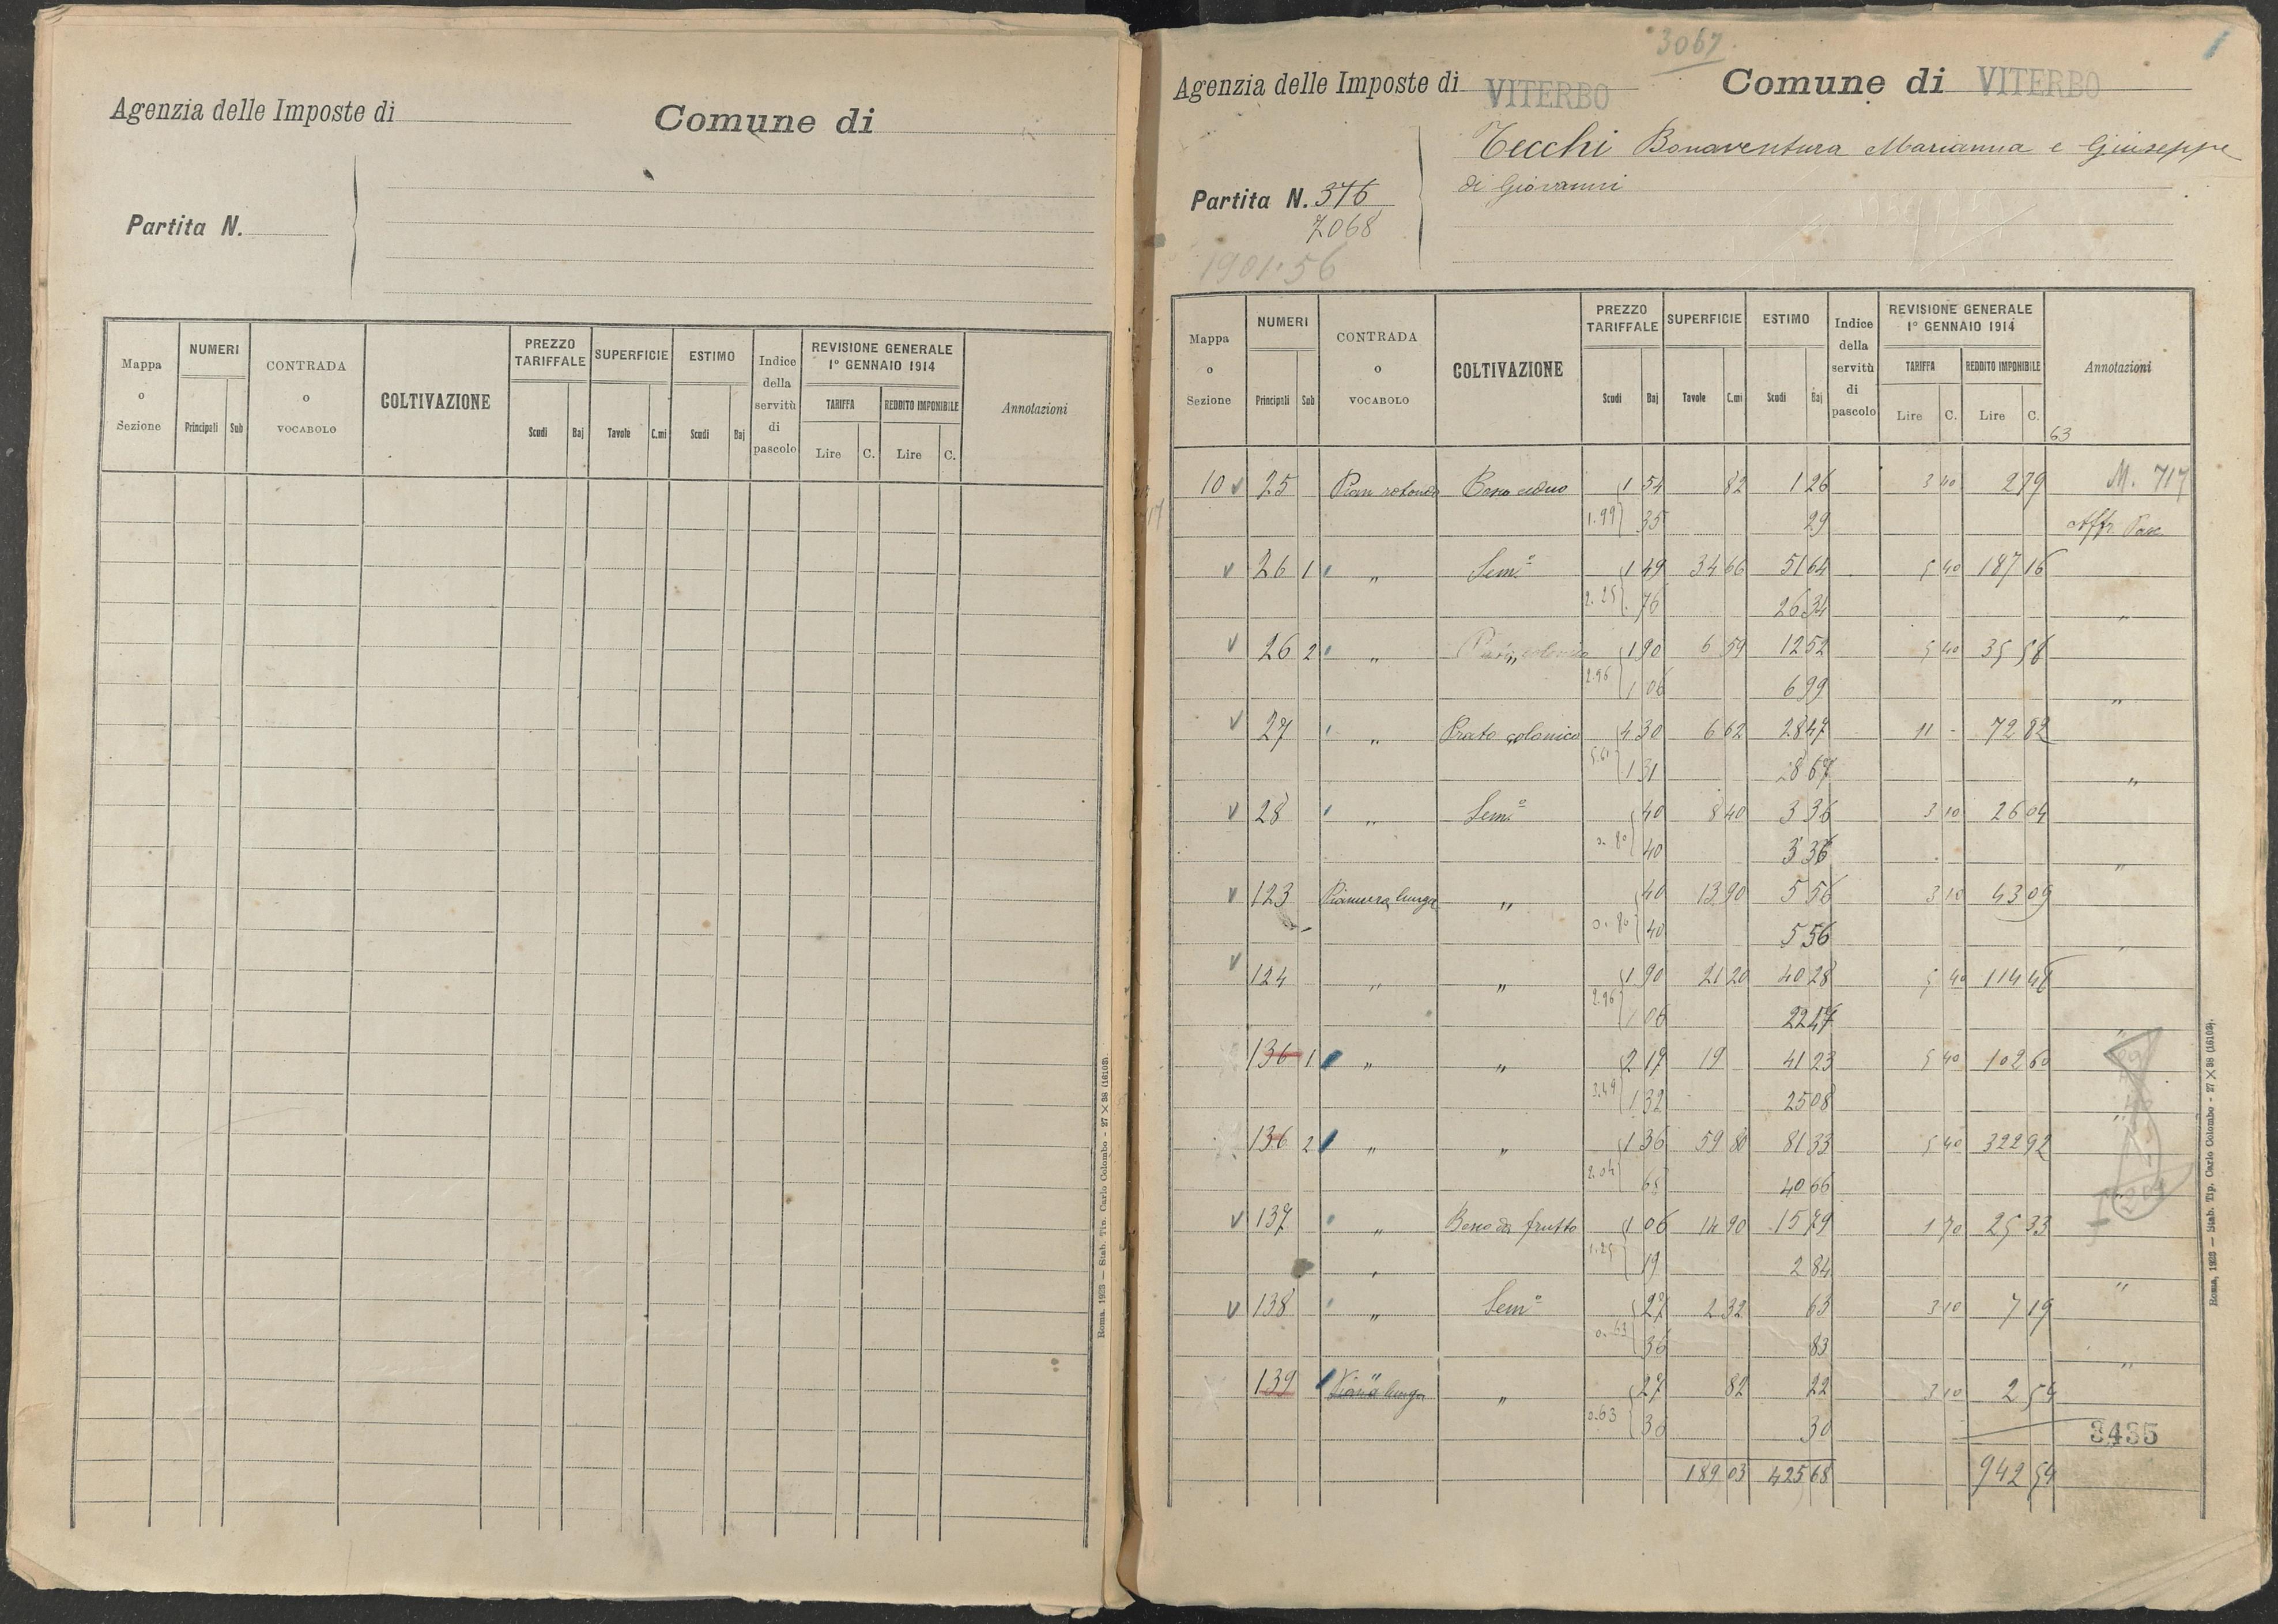 Agenzia delle Imposte di
Comune di
Partita N.
Mappa o Sezione
NUMERI
Principali Sub
CONTRADA o VOCABOLO
COLTIVAZIONE
PREZZO TARIFFALE
Scudi Baj
SUPERFICIE
Tavole C.mi
ESTIMO
Scudi Baj
Indice della servitù di pascolo
REVISIONE GENERALE
1° GENNAIO 1914
TARIFFA
Lire C.
REDDITO IMPONIBILE
Lire C.
Annotazioni
Roma, 1923 — Stab. Tip. Carlo Colombo - 27 × 38 (16103).
3067
Agenzia delle Imposte di VITERBO
Comune di VITERBO
Tecchi Bonaventura Marianna e Giuseppe
di Giovanni
Partita N. 376
7068
1901.56
Mappa o Sezione
NUMERI
Principali Sub
CONTRADA o VOCABOLO
COLTIVAZIONE
PREZZO TARIFFALE
Scudi Baj
SUPERFICIE
Tavole C.mi
ESTIMO
Scudi Baj
Indice della servitù di pascolo
REVISIONE GENERALE
1° GENNAIO 1914
TARIFFA
Lire C.
REDDITO IMPONIBILE
Lire C.
Annotazioni
63
10 v 25 Pian rotondo Bosco ceduo 1 54 82 1 26 3 40 2 79 M. 717
1.99 35 29 Affr. Pasc.
v 26 1 " Sem.° 1 49 34 66 51 64 5 40 187 16
2.25 76 26 34 "
v 26 2 " " 1 90 6 59 12 52 5 40 35 58
2.96 1 06 6 99 "
v 27 " Prato colonico 4 30 6 62 28 47 11 - 72 82
5.61 1 31 8 67 "
v 28 " Sem.° 40 8 40 3 36 3 10 26 04
0.80 40 3 36 "
v 123 Pianura lunga " 40 13 90 5 56 3 10 43 09
0.80 40 5 56 "
v 124 " " 1 90 21 20 40 28 5 40 114 48
2.96 1 06 22 47 "
136 1 " " 2 17 19 41 23 5 40 102 60
3.49 1 32 25 08 "
136 2 " " 1 36 59 80 81 33 5 40 322 92
2.04 68 40 66 "
v 137 " Bosco da frutto 1 06 14 90 15 79 1 70 25 33
1.25 19 2 84 "
v 138 " Sem.° 27 2 32 63 3 10 7 19
0.63 36 83 "
139 " 27 82 22 3 10 2 54
0.63 36 30 3435
189 03 425 68 942 54
Roma, 1923 — Stab. Tip. Carlo Colombo - 27 × 38 (16103).